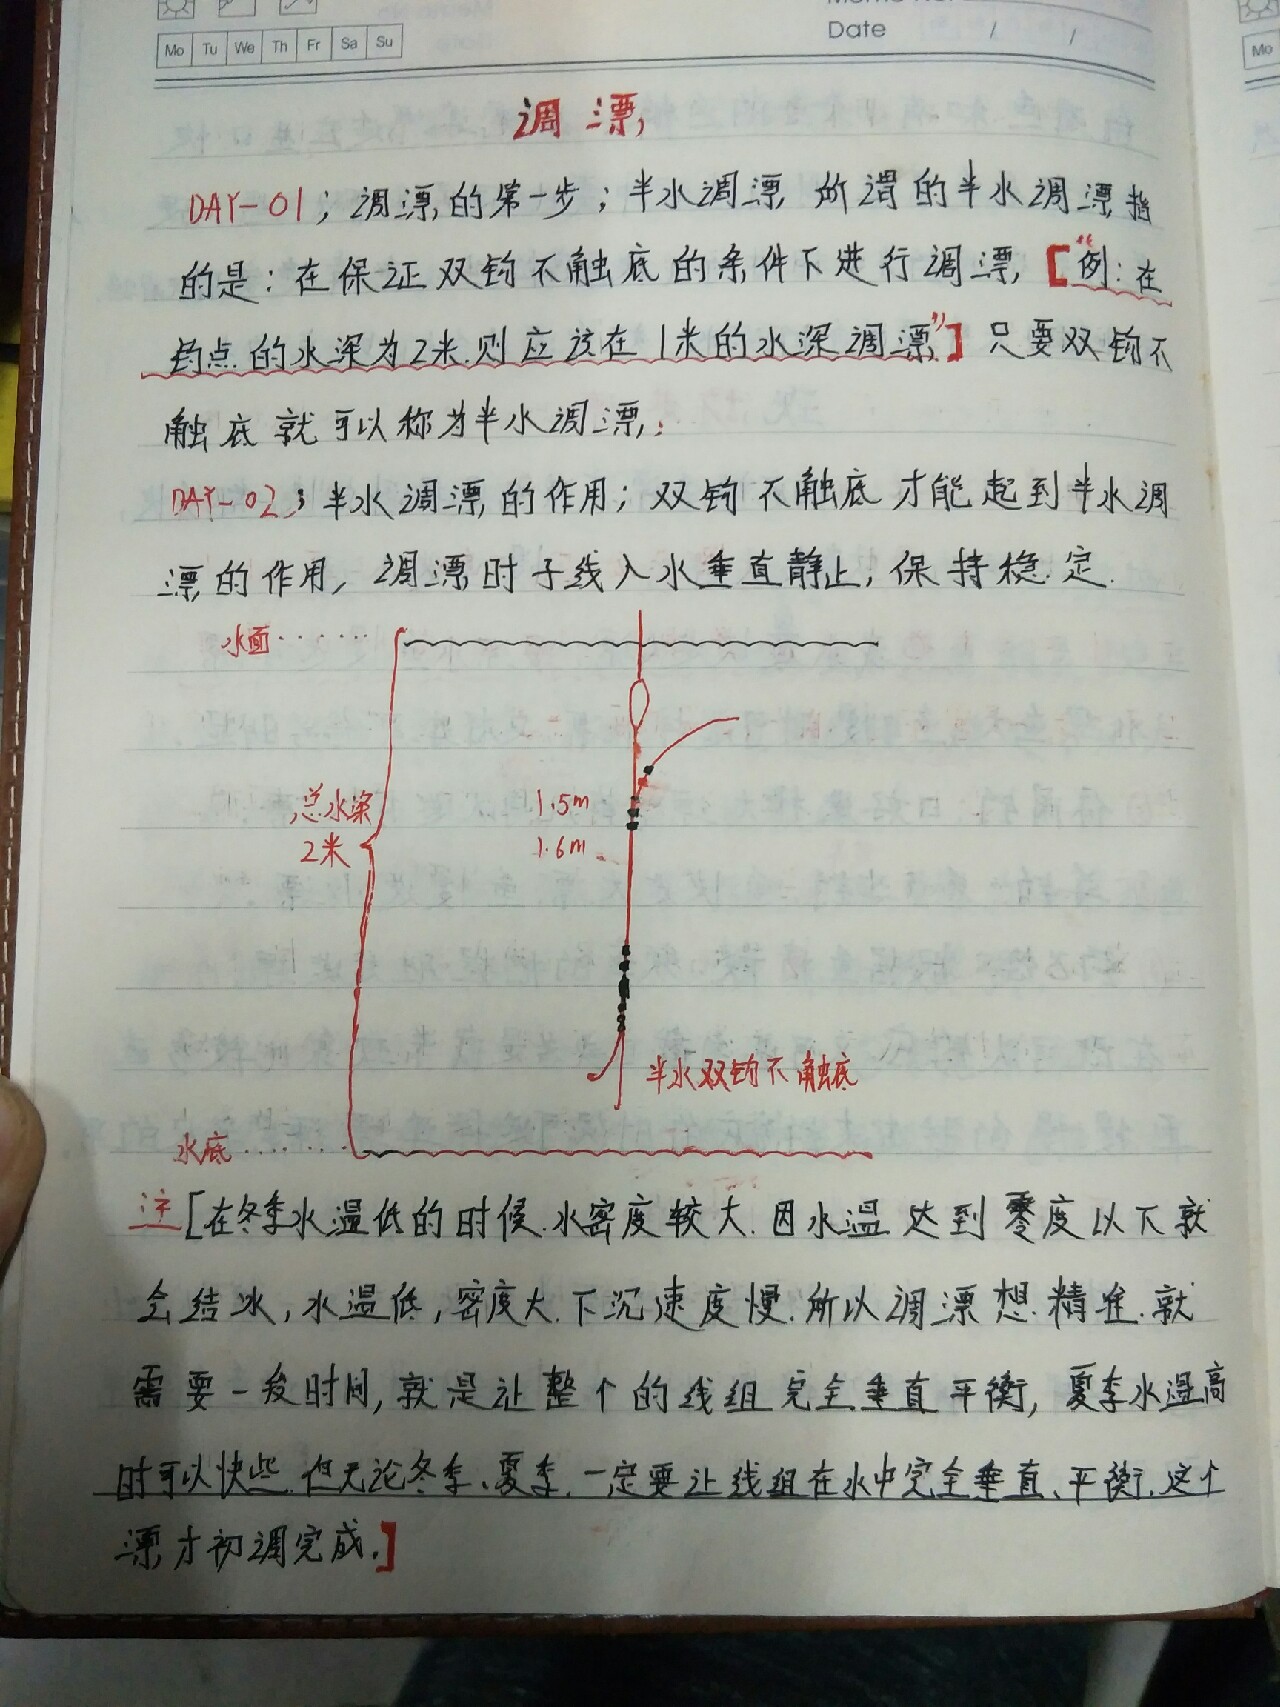 Memo No.
Mo Tu We Th Fr Sa Su
Date / /
Mo
调漂
DAY-01；调漂的第一步；半水调漂 所谓的半水调漂指
的是：在保证双钩不触底的条件下进行调漂，【“例：在
钓点的水深为2米.则应该在1米的水深调漂”】只要双钩不
触底就可以称为半水调漂；
DAY-02；半水调漂的作用；双钩不触底才能起到半水调
漂的作用，调漂时子线入水垂直静止，保持稳定.
水面······
总水深
2米
1.5m
1.6m
半水双钩不触底
水底······
注［在冬季水温低的时候.水密度较大.因水温达到零度以下就
会结冰，水温低，密度大.下沉速度慢.所以调漂想精准.就
需要一段时间，就是让整个的线组完全垂直平衡，夏季水温高
时可以快些.但无论冬季、夏季.一定要让线组在水中完全垂直、平衡.这个
漂才初调完成.］